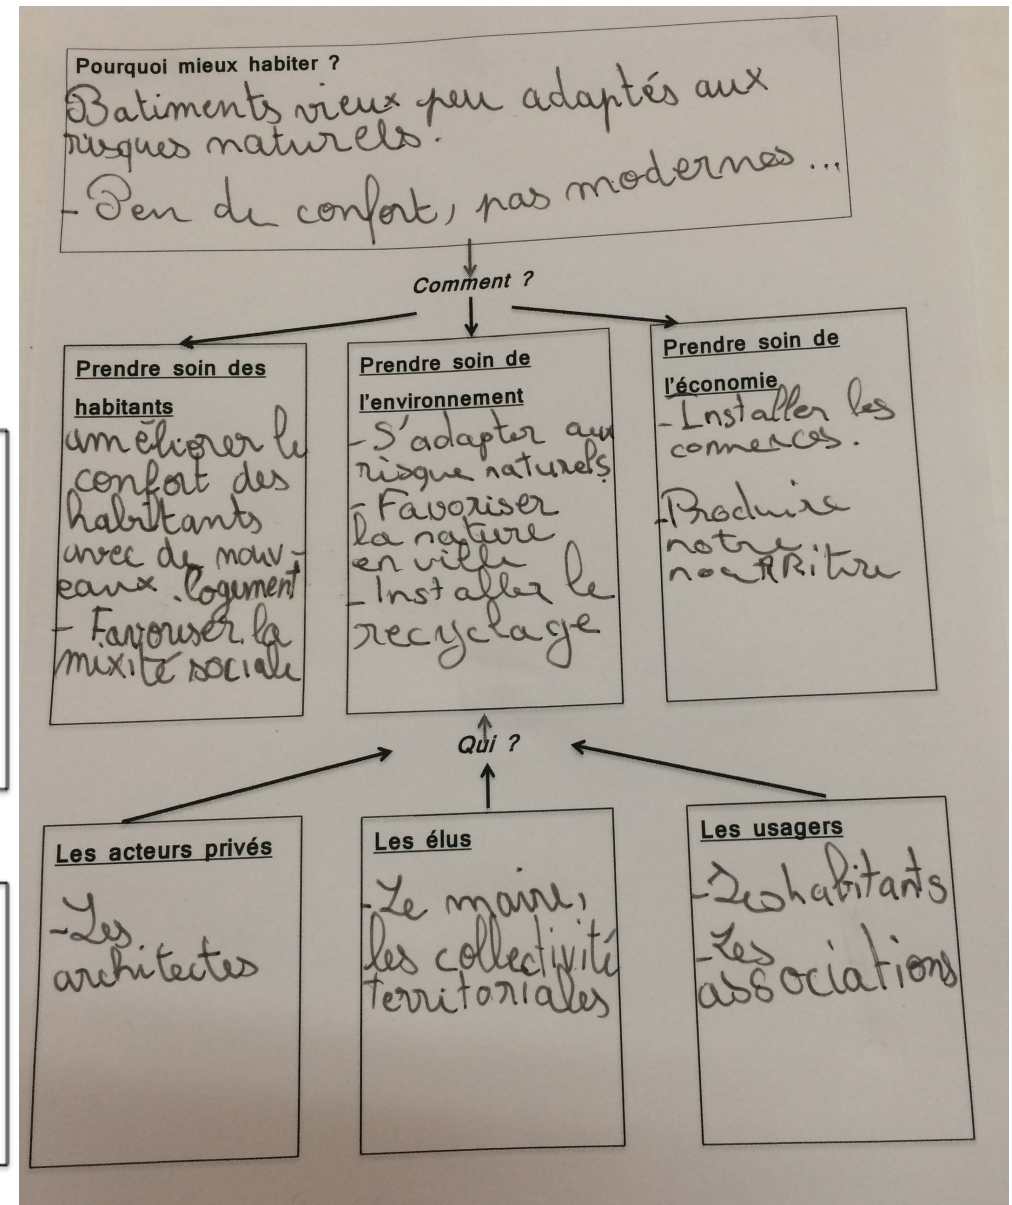 Pourquoi mieux habiter ?
Batiments vieux peu adaptés aux
risques naturels.
- Peu de confort, pas modernes ...
Comment ?
Prendre soin des
habitants
améliorer le
confort des
habitants
avec de nouv-
eaux logement
- Favoriser la
mixité sociale
Prendre soin de
l'environnement
- S'adapter aux
risque naturels
- Favoriser
la nature
en ville
- Installer le
recyclage
Prendre soin de
l'économie
- Installer les
commerces.
- Produire
notre
nourriture
Qui ?
Les acteurs privés
- Les
architectes
Les élus
- Le maire,
les collectivité
territoriales
Les usagers
- Les habitants
- Les
associations